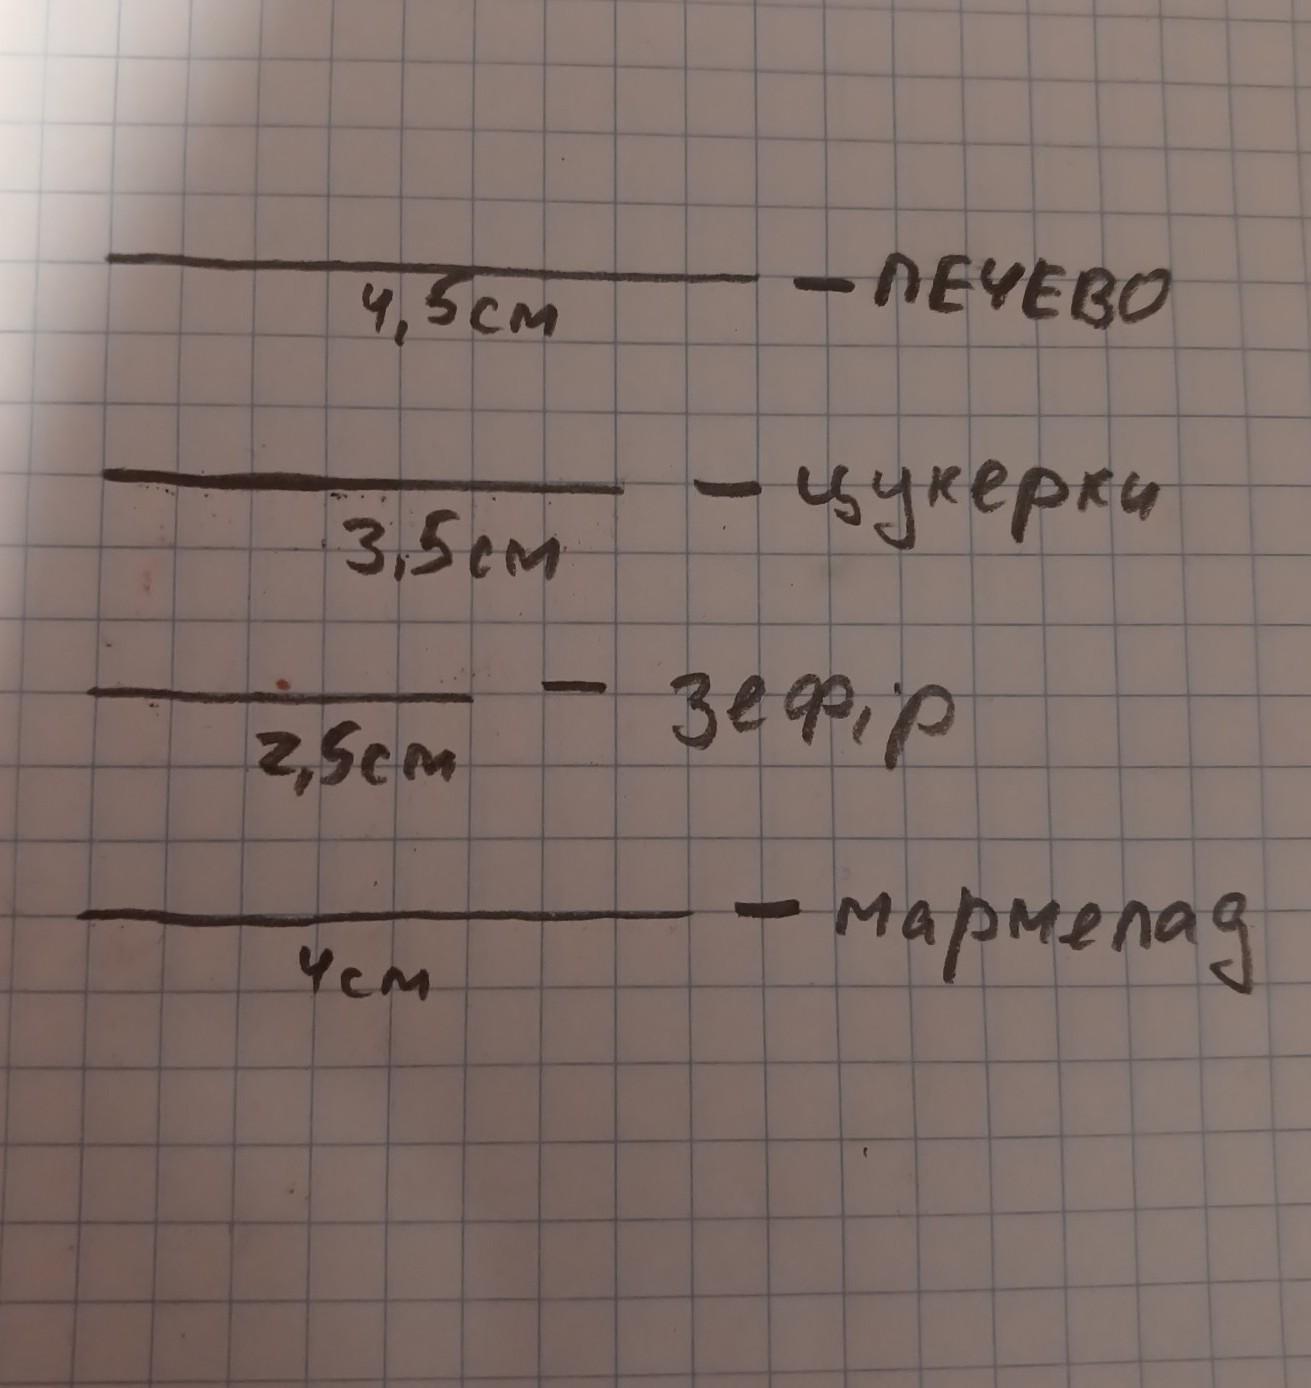 - ПЕЧЕВО
4,5см
- цукерки
3,5см
- зефір
2,5см
- мармелад
4см